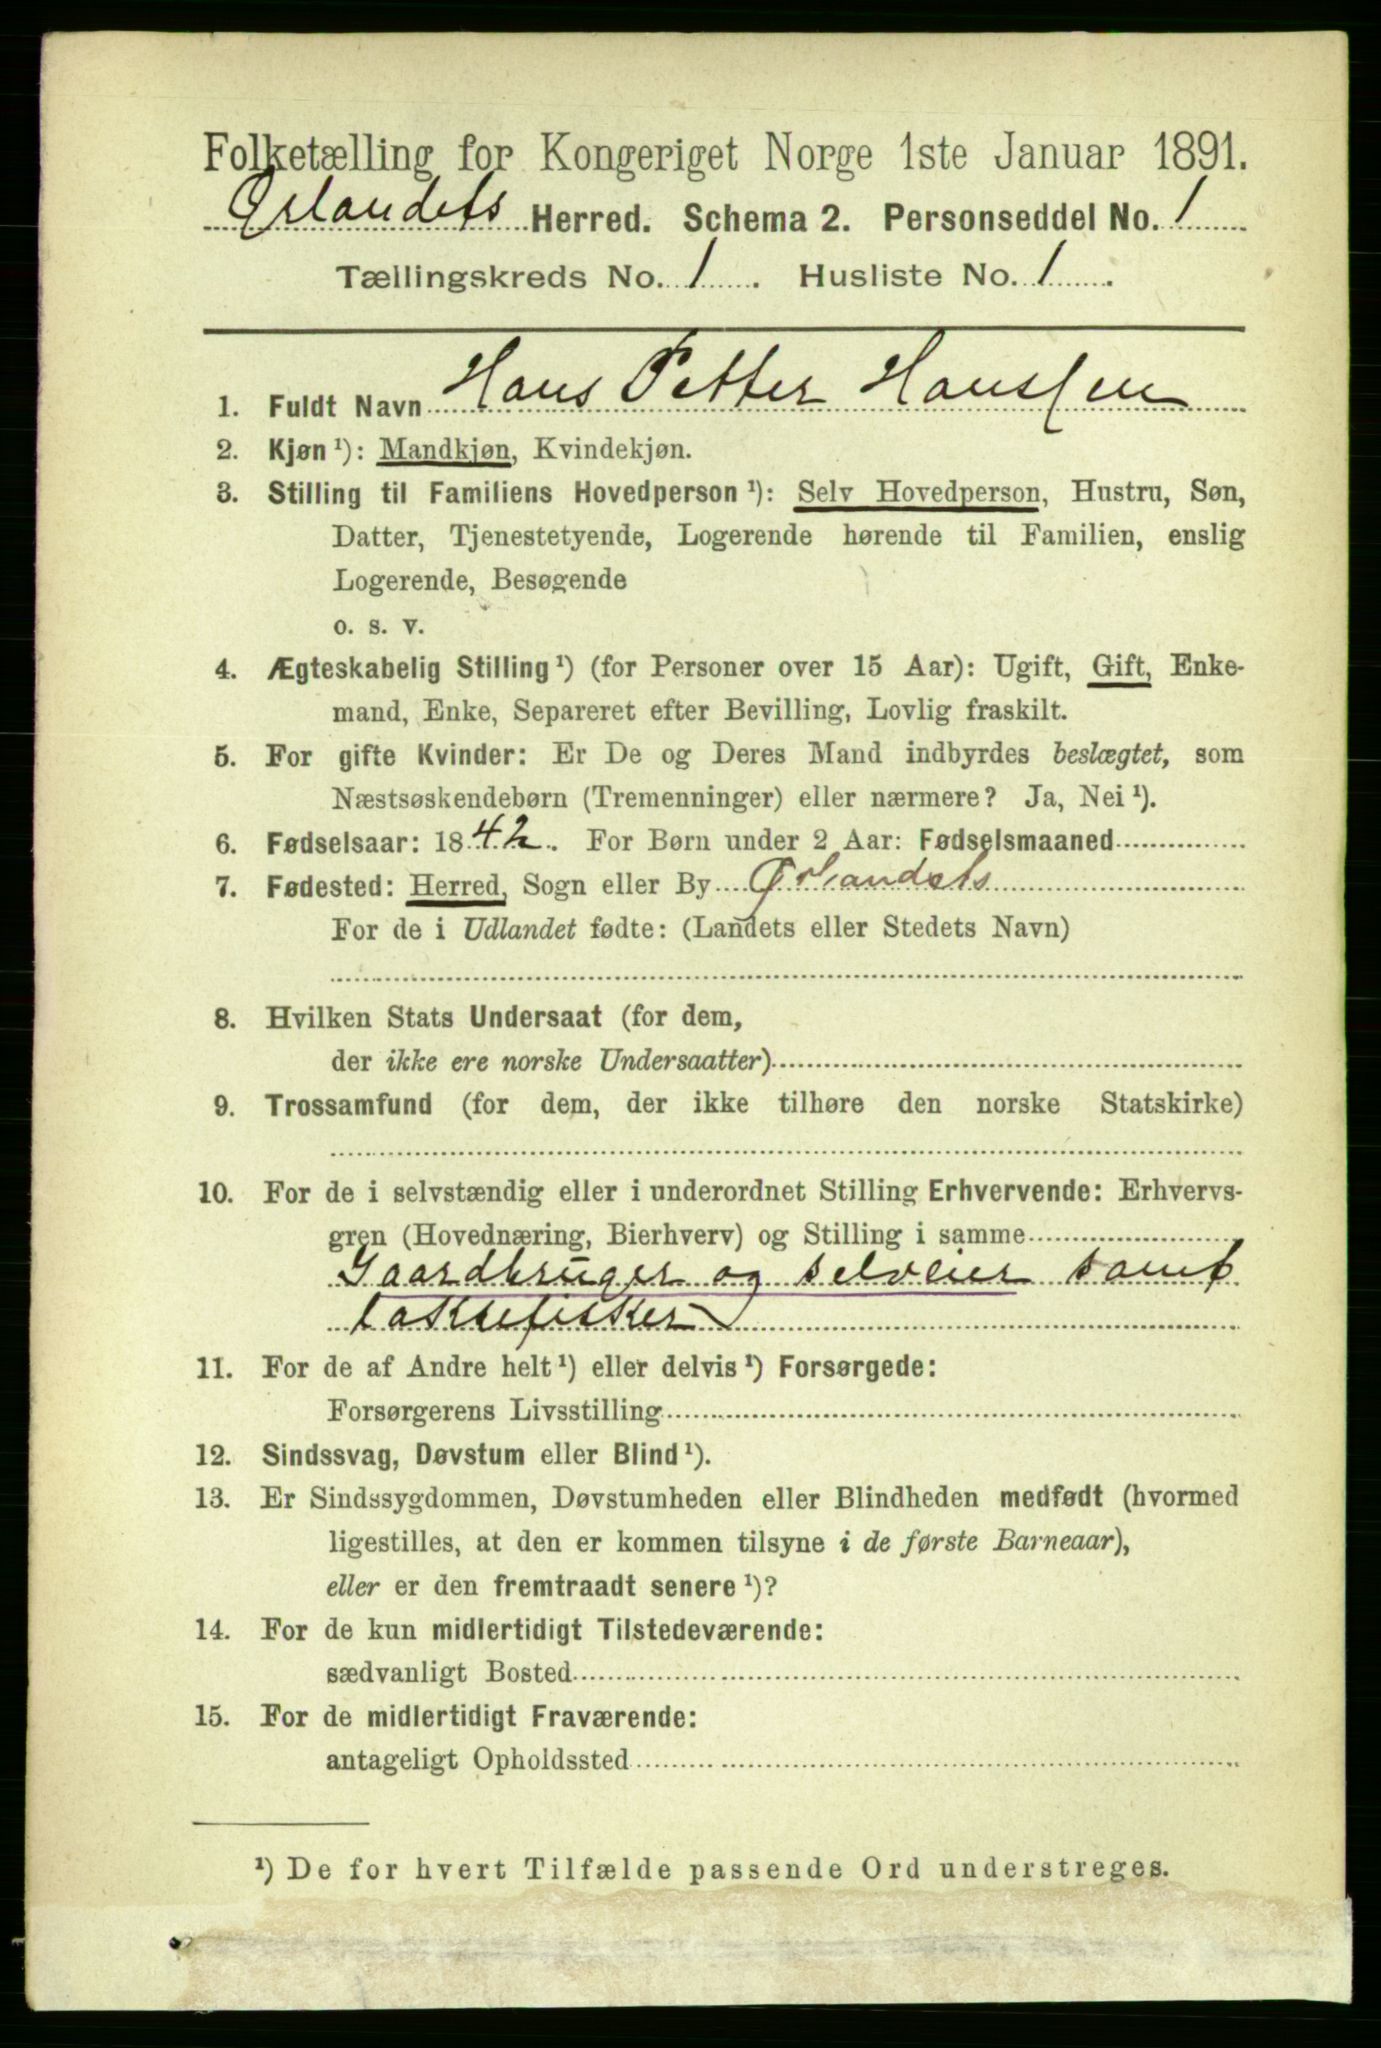 Folketælling for Kongeriget Norge 1ste Januar 1891.
Ørlandets Herred. Schema 2. Personseddel No. 1
Tællingskreds No. 1. Husliste No. 1.
1. Fuldt Navn Hans Petter Hanssen
2. Kjøn ¹): Mandkjøn, Kvindekjøn.
3. Stilling til Familiens Hovedperson ¹): Selv Hovedperson, Hustru, Søn,
Datter, Tjenestetyende, Logerende hørende til Familien, enslig
Logerende, Besøgende
o. s. v.
4. Ægteskabelig Stilling ¹) (for Personer over 15 Aar): Ugift, Gift, Enke-
mand, Enke, Separeret efter Bevilling, Lovlig fraskilt.
5. For gifte Kvinder: Er De og Deres Mand indbyrdes beslægtet, som
Næstsøskendebørn (Tremenninger) eller nærmere? Ja, Nei ¹).
6. Fødselsaar: 1842. For Børn under 2 Aar: Fødselsmaaned
7. Fødested: Herred, Sogn eller By Ørlandets
For de i Udlandet fødte: (Landets eller Stedets Navn)
8. Hvilken Stats Undersaat (for dem,
der ikke ere norske Undersaatter)
9. Trossamfund (for dem, der ikke tilhøre den norske Statskirke)
10. For de i selvstændig eller i underordnet Stilling Erhvervende: Erhvervs-
gren (Hovednæring, Bierhverv) og Stilling i samme
Gaardbruger og selveier samt
laksefisker
11. For de af Andre helt ¹) eller delvis ¹) Forsørgede:
Forsørgerens Livsstilling
12. Sindssvag, Døvstum eller Blind ¹).
13. Er Sindssygdommen, Døvstumheden eller Blindheden medfødt (hvormed
ligestilles, at den er kommen tilsyne i de første Barneaar),
eller er den fremtraadt senere ¹)?
14. For de kun midlertidigt Tilstedeværende:
sædvanligt Bosted
15. For de midlertidigt Fraværende:
antageligt Opholdssted
¹) De for hvert Tilfælde passende Ord understreges.